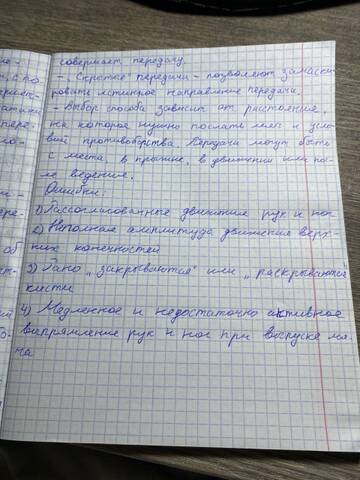 совершает передачу.
- Скрытые передачи - позволяют замаски
ровать истинное направление передачи.
- Выбор способа зависит от расстояния,
на которое нужно послать мяч и усло-
вий противоборства. Передачи могут быть
с места, в прыжке, в движении или по-
сле ведение.
Ошибки:
1) Рассогласованные движение рук и ног
2) Неполная амплитуда движения верх-
них конечностей
3) Рано "закрываются" или "раскрываются"
кисти
4) Медленное и недостаточно активное
выпрямление рук и ног при выпуске мя-
ча